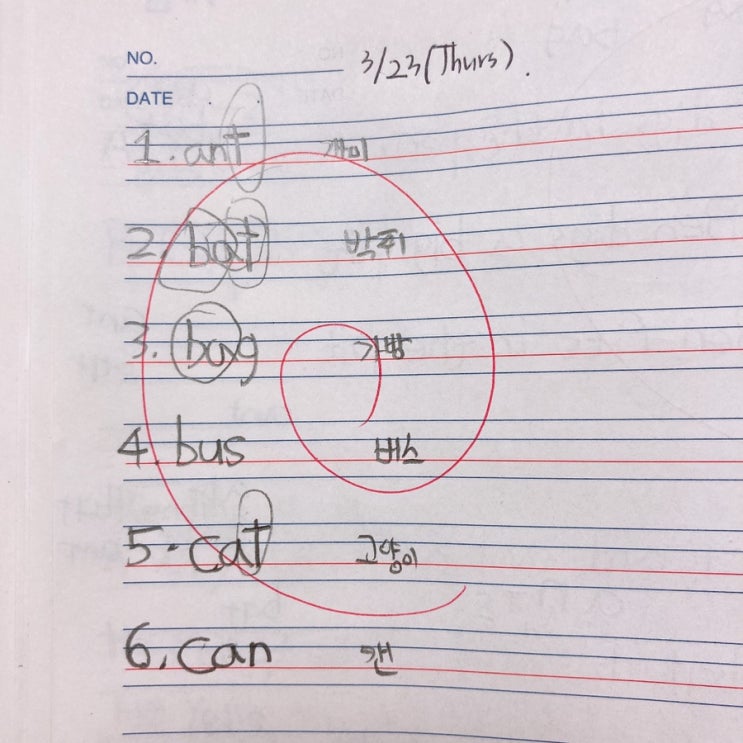 NO. 3/23(Thurs).
DATE
1. ant 개미
2. bat 박쥐
3. bag 가방
4. bus 버스
5. cat 고양이
6. can 캔